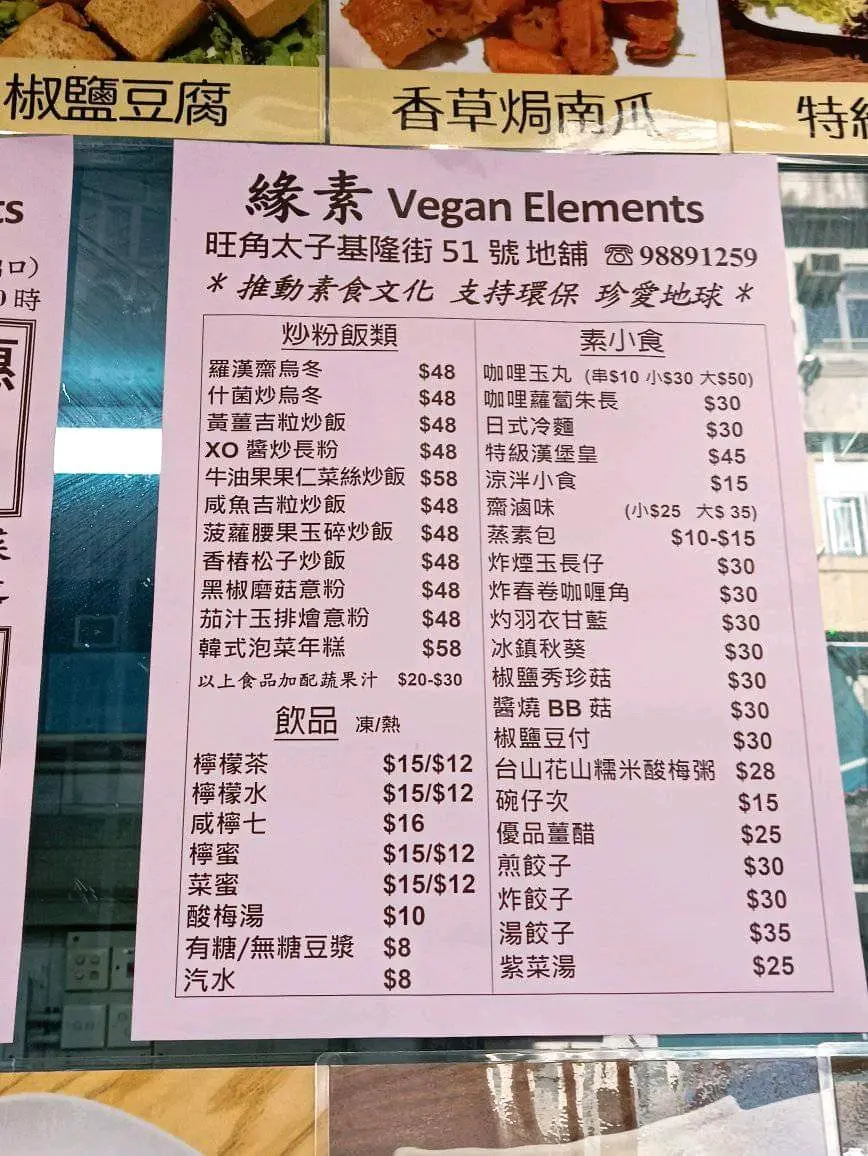 椒鹽豆腐
香草焗南瓜
特
緣素 Vegan Elements
旺角太子基隆街 51 號地舖 ☏98891259
* 推動素食文化 支持環保 珍愛地球 *
炒粉飯類
羅漢齋烏冬 $48
什菌炒烏冬 $48
黃薑吉粒炒飯 $48
XO 醬炒長粉 $48
牛油果果仁菜絲炒飯 $58
咸魚吉粒炒飯 $48
菠蘿腰果玉碎炒飯 $48
香椿松子炒飯 $48
黑椒磨菇意粉 $48
茄汁玉排燴意粉 $48
韓式泡菜年糕 $58
以上食品加配蔬果汁 $20-$30
飲品 凍/熱
檸檬茶 $15/$12
檸檬水 $15/$12
咸檸七 $16
檸蜜 $15/$12
菜蜜 $15/$12
酸梅湯 $10
有糖/無糖豆漿 $8
汽水 $8
素小食
咖哩玉丸 (串$10 小$30 大$50)
咖哩蘿蔔朱長 $30
日式冷麵 $30
特級漢堡皇 $45
涼泮小食 $15
齋滷味 (小$25 大$ 35)
蒸素包 $10-$15
炸煙玉長仔 $30
炸春卷咖喱角 $30
灼羽衣甘藍 $30
冰鎮秋葵 $30
椒鹽秀珍菇 $30
醬燒 BB 菇 $30
椒鹽豆付 $30
台山花山糯米酸梅粥 $28
碗仔次 $15
優品薑醋 $25
煎餃子 $30
炸餃子 $30
湯餃子 $35
紫菜湯 $25
ts
口)
時
惠